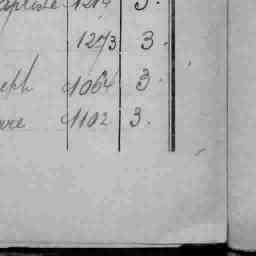 aptiste 1214 3.
1273 3.
eph 1064 3
re 1102 3.